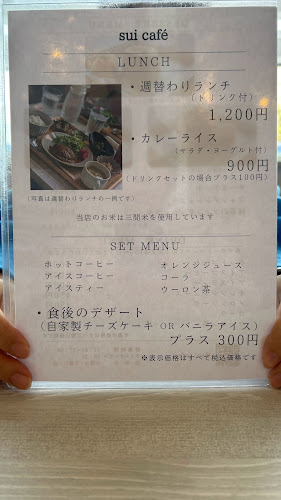 sui café
LUNCH
・週替わりランチ
(ドリンク付)
1,200円
・カレーライス
(サラダ・ヨーグルト付)
900円
(ドリンクセットの場合プラス100円)
(写真は週替わりランチの一例です)
当店のお米は三間米を使用しています
SET MENU
ホットコーヒー
アイスコーヒー
アイスティー
オレンジジュース
コーラ
ウーロン茶
・食後のデザート
(自家製チーズケーキ OR バニラアイス)
プラス 300円
※表示価格はすべて税込価格です